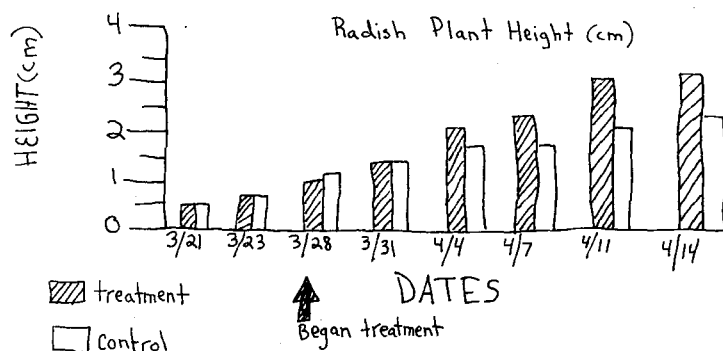 Radish Plant Height (cm)
HEIGHT (cm)
4
3
2
1
0
3/21 3/23 3/28 3/31 4/4 4/7 4/11 4/14
DATES
treatment
Began treatment
Control